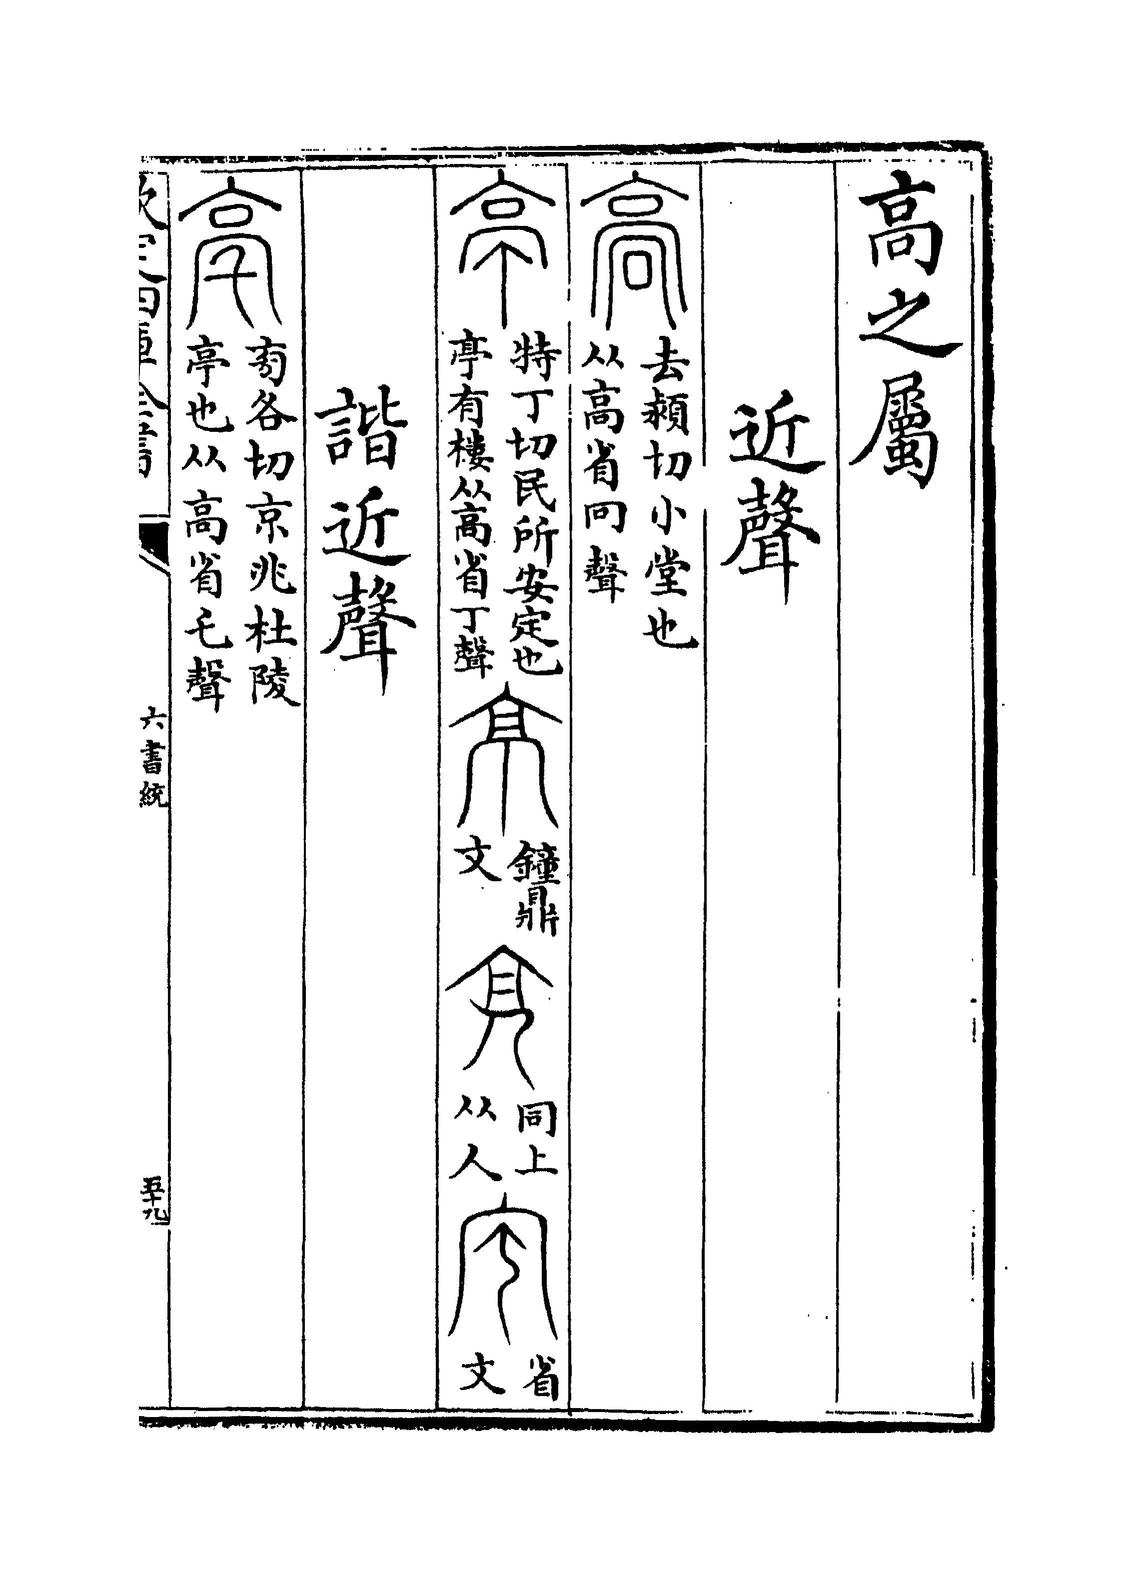 高之屬
近聲
䯧
去熲切小堂也
从高省冋聲
亭
特丁切民所安定也
亭有樓从高省丁聲
鐘鼎
文
同上
从人
省
文
諧近聲
亳
旁各切京兆杜陵
亭也从高省乇聲
欽定四庫全書
六書統
五十九